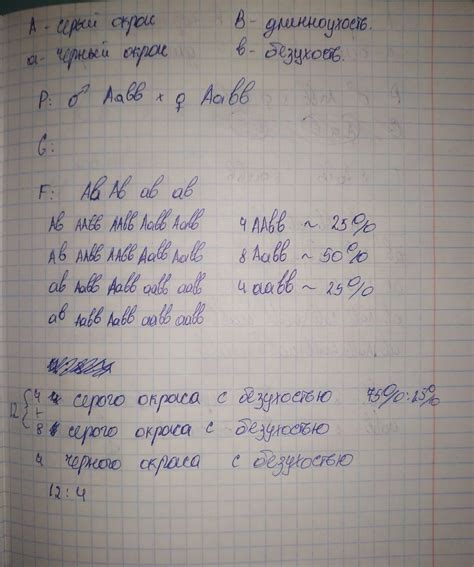 А - серый окрас В - длинноухость.
а - черный окрас в - безухость.
Р: ♂ Аавв × ♀ Аавв
G:
F: Ав Ав ав ав
Ав ААвв ААвв Аавв Аавв 4 ААвв ~ 25%
Ав ААвв ААвв Аавв Аавв 8 Аавв ~ 50%
ав Аавв Аавв аавв аавв 4 аавв ~ 25%
ав Аавв Аавв аавв аавв
12 { 4 серого окраса с безухостью 75% : 25%
+
8 серого окраса с безухостью
4 черного окраса с безухостью
12 : 4